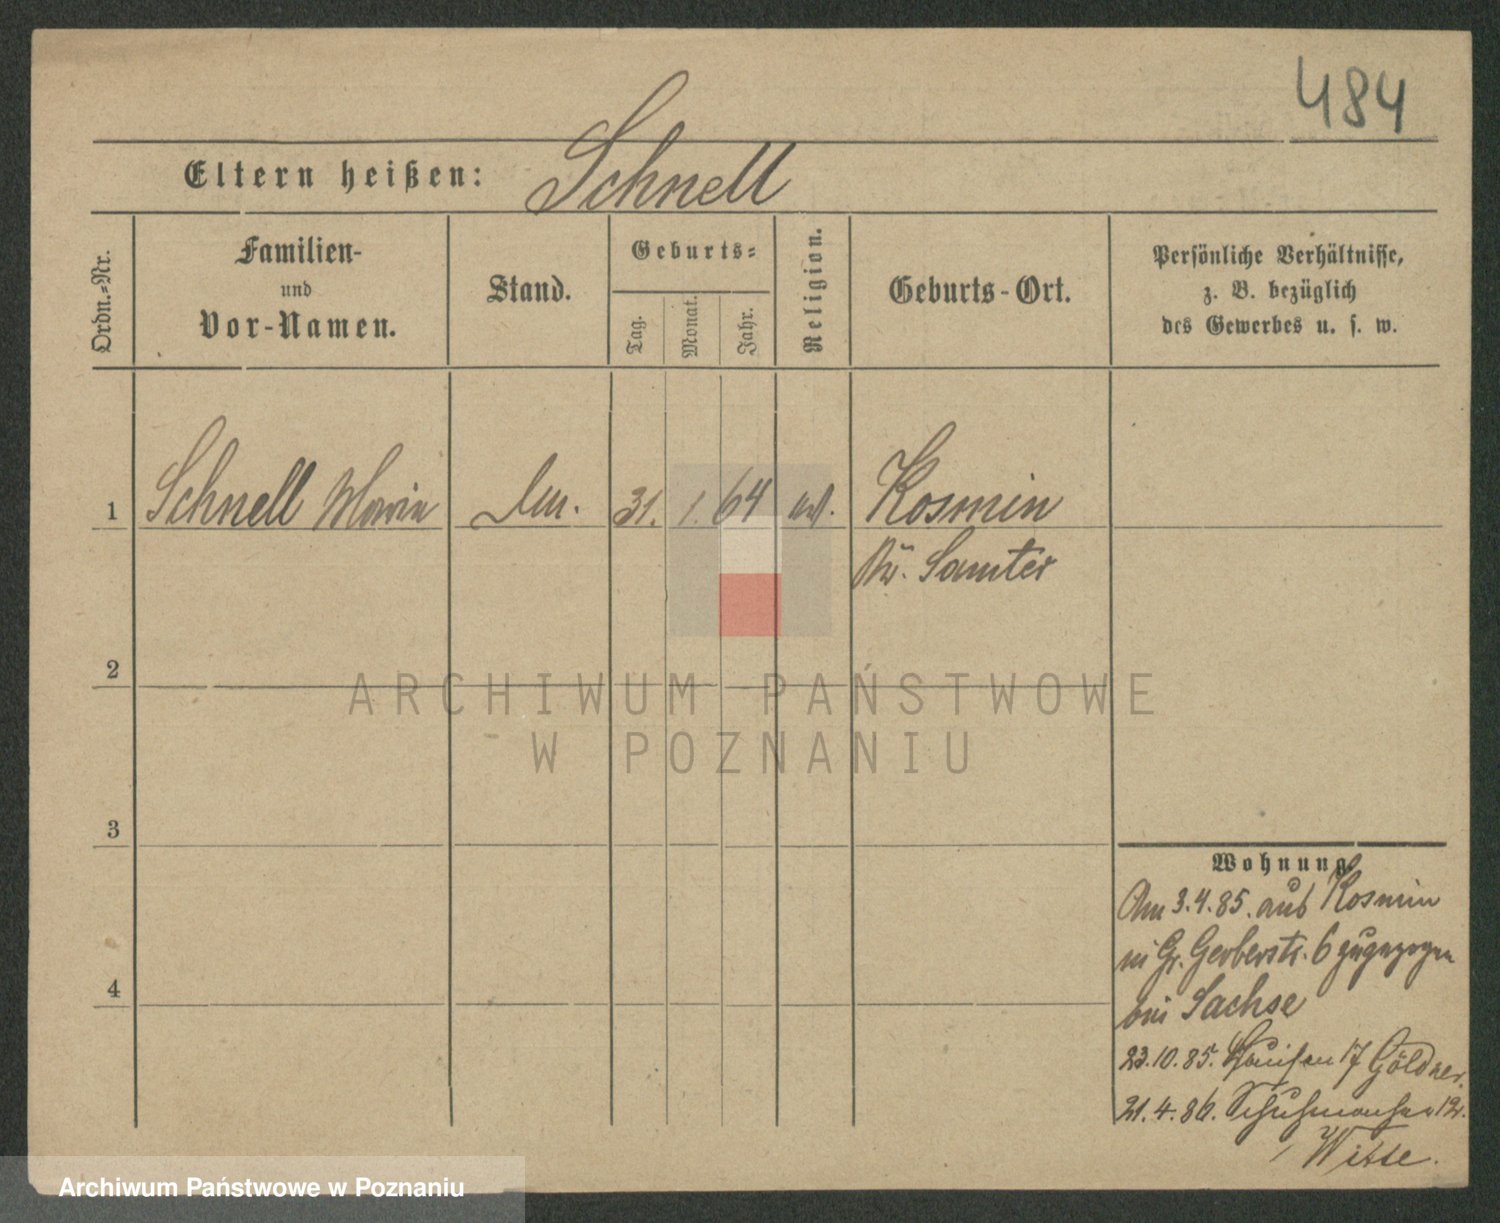 484
Eltern heißen: Schnell
Ordn.-Nr.
Familien-
und
Vor-Namen.
Stand.
Geburts-
Tag.
Monat.
Jahr.
Religion.
Geburts-Ort.
Persönliche Verhältnisse,
z. B. bezüglich
des Gewerbes u. s. w.
1 Schnell Maria 31. 1. 64 Kosmin
Kr. Samter
2
ARCHIWUM PAŃSTWOWE
W POZNANIU
3
Wohnung.
Am 3.4.85. aus Kosmin
in Gr. Gerberstr. 6 zugezogen
bei Sachse
4
23.10.85. 17 Göldner.
21.4.86. 12.
Witte.
Archiwum Państwowe w Poznaniu